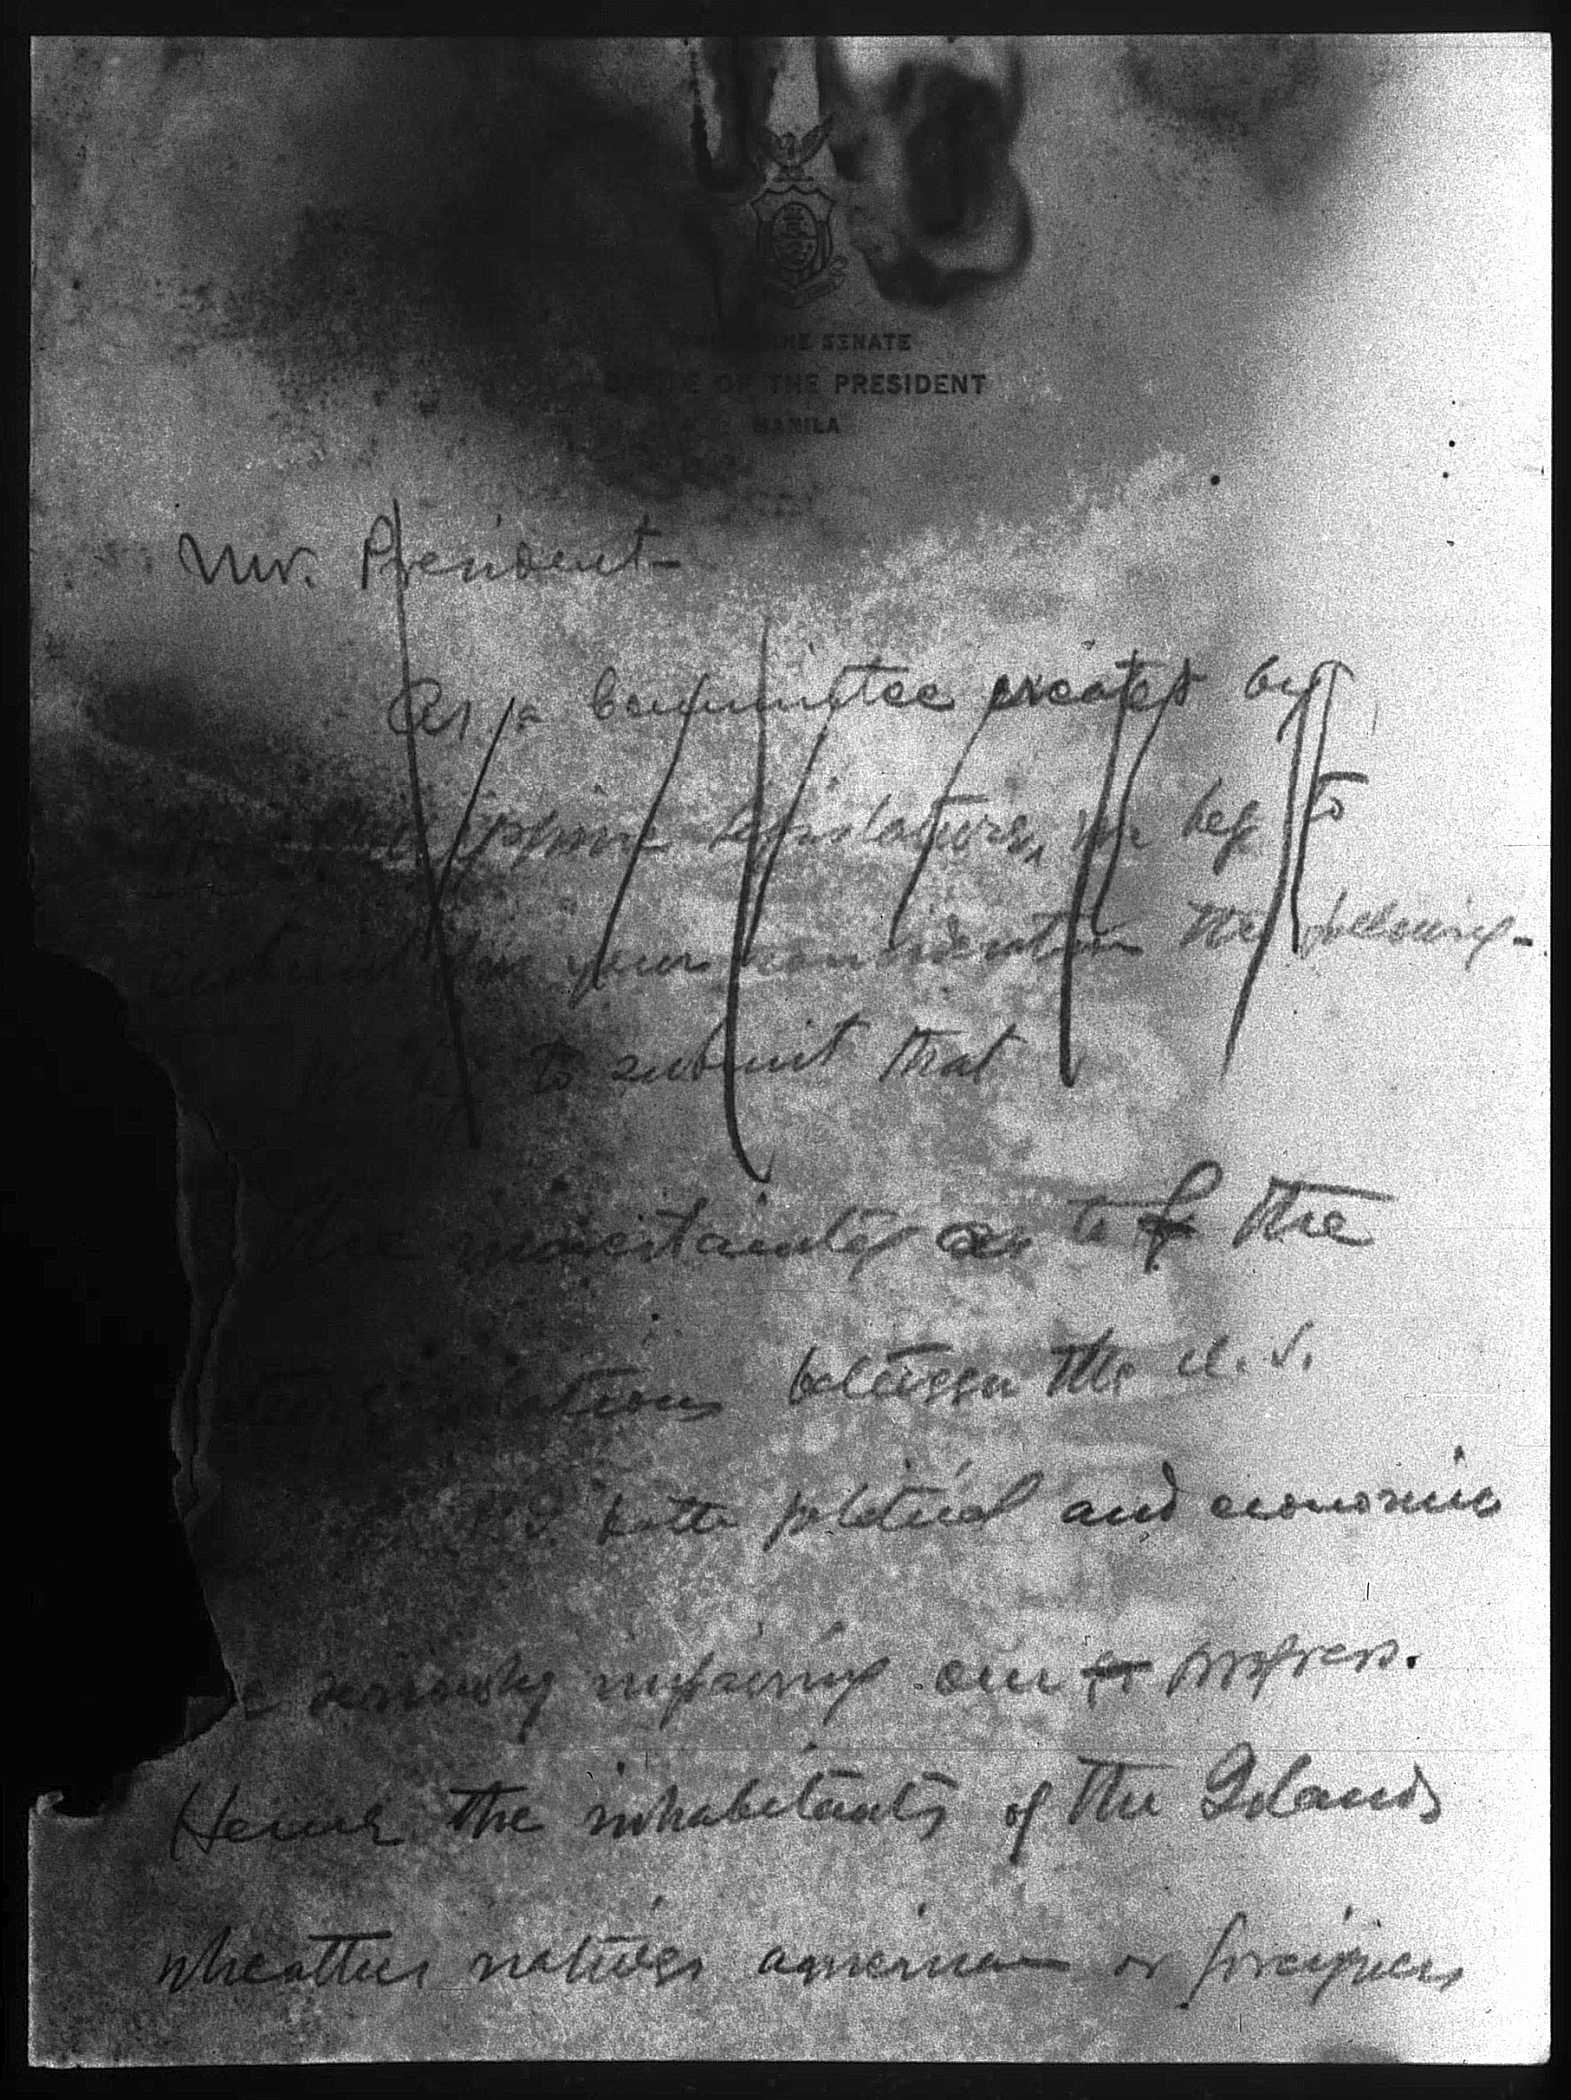 THE SENATE
OFFICE OF THE PRESIDENT
MANILA
Mr. President-
As a Committee created by
Legislature, we beg to
your consideration the following-
to submit that
The uncertainty as to the
relations between the U.S.
P.I. both political and economic
seriously impairing our progress.
Hence the inhabitants of the Islands
wheather natives american or foreigners